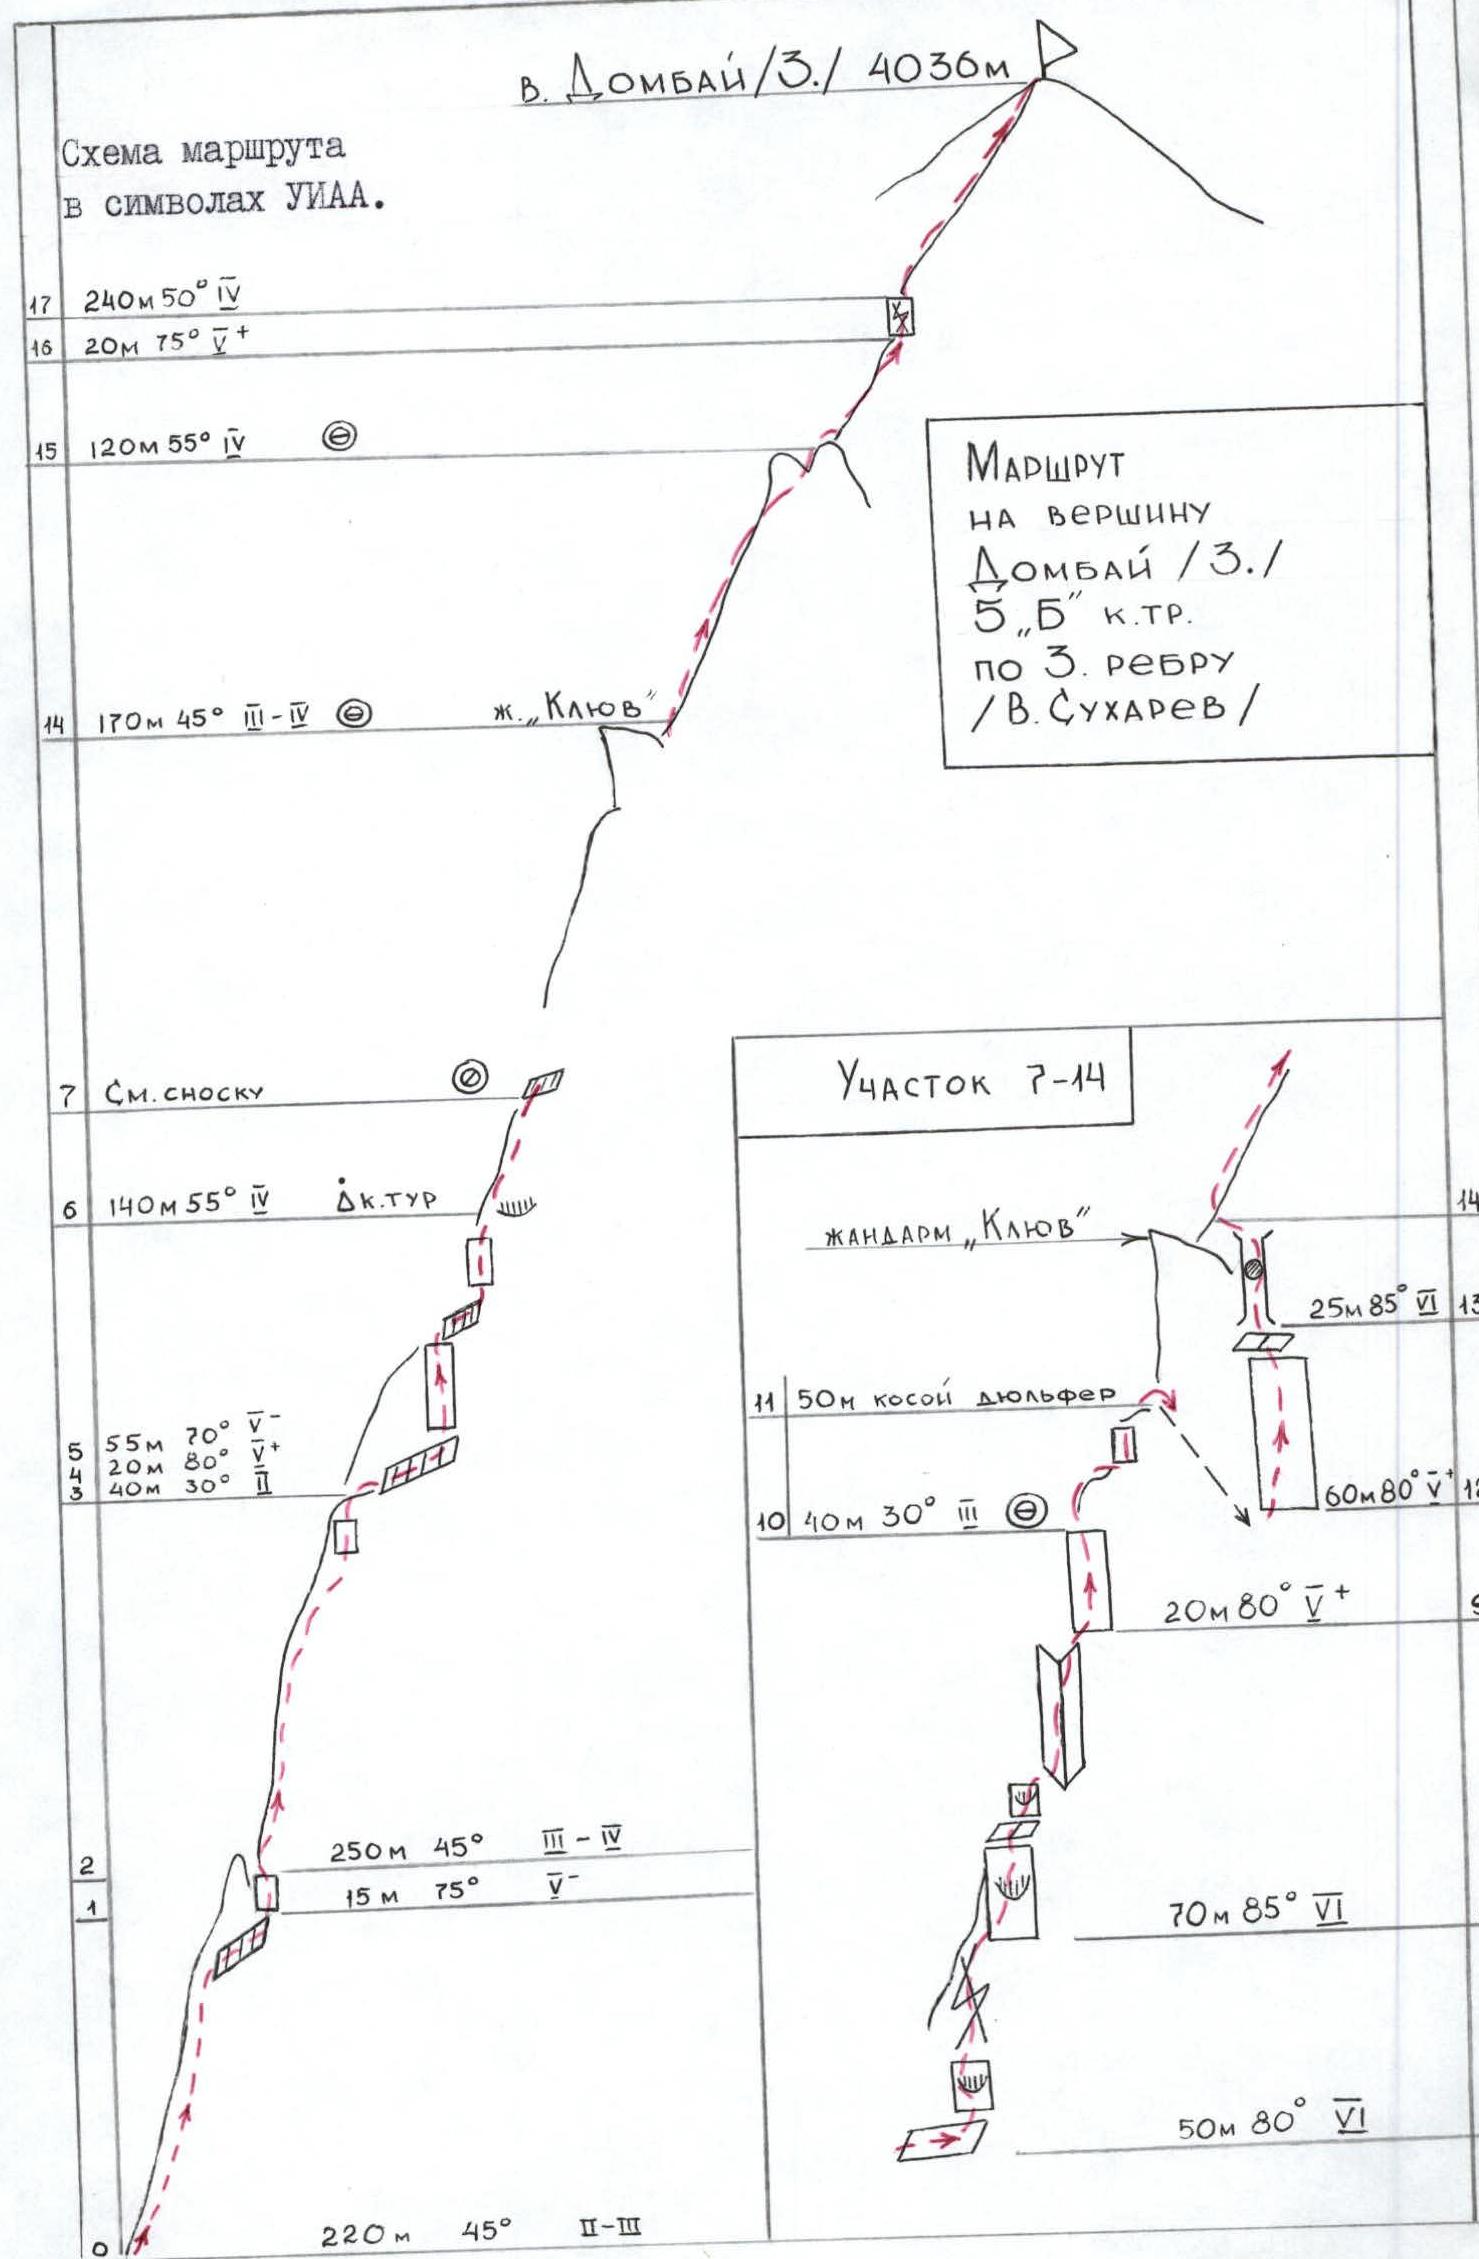 в. Домбай /З./ 4036м
Схема маршрута
в символах УИАА.
17 240м 50° IV
16 20м 75° V+
15 120м 55° IV
Маршрут
на вершину
Домбай /З./
5 „Б" к.тр.
по З. ребру
/В. Сухарев/
14 170м 45° III-IV ж. „Клюв"
7 См. сноску
Участок 7-14
6 140м 55° IV к.тур
14
жандарм „Клюв"
25м 85° VI 13
11 50м косой дюльфер
5 55м 70° V-
4 20м 80° V+
3 40м 30° II
60м 80° V+ 12
10 40м 30° III
20м 80° V+
2 250м 45° III-IV
1 15м 75° V-
70м 85° VI
50м 80° VI
0 220м 45° II-III